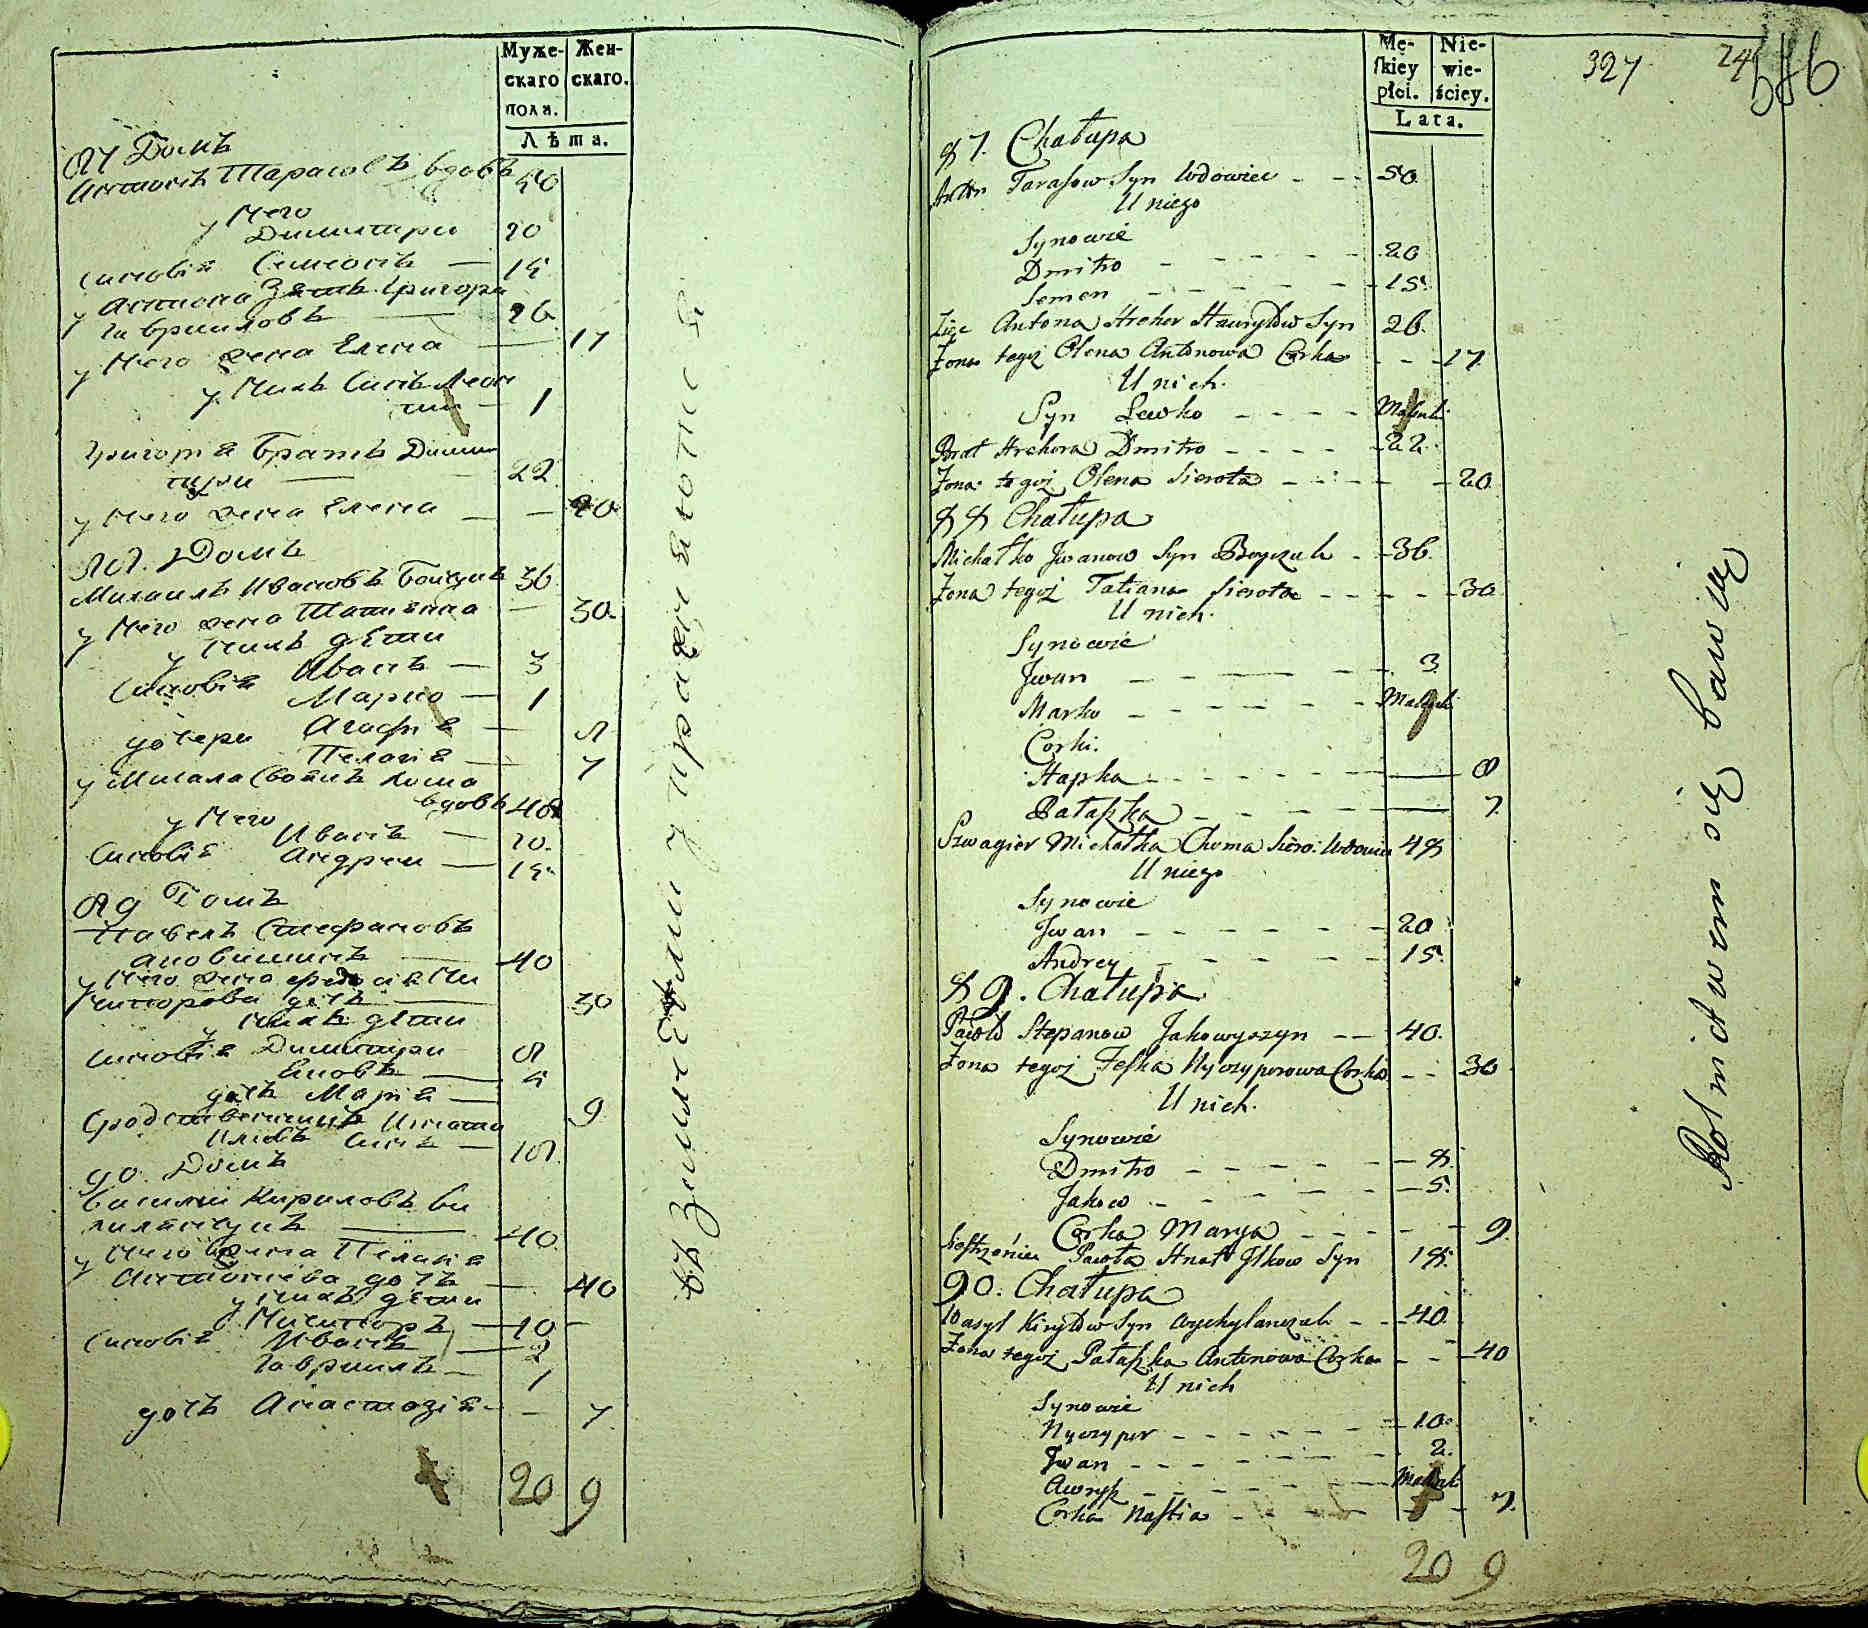 Муже-
скаго
пола.
Жен-
скаго.
Лѣта.
87 Домъ
Антонъ Тарасовъ вдовъ 50
у Него
Димитри 20
синовія Симіонъ — 15
у Антона Зять Григори
Гавриловъ — 26
у Него жена Елена — 17
у Нихъ Синъ Леон
тии — 1
Григорія Братъ Дими
трии — 22
у Него жена Елена — 20
88. Домъ
Михаилъ Ивановъ Бойчукъ 36
у Него жена Татіяна — 30
у нихъ дѣти
Синовія Иванъ — 3
Марко — 1
дочери Агафія — 8
Пелагія — 7
у Михала Своякъ Хома
вдовъ 48
у Него
Синовія Иванъ — 20
Андреи — 15
89 Домъ
Павелъ Стефановъ
40
у Него жена Ни
чипорова дочь — 30
у нихъ дѣти
синовія Димитри 8
Яковъ — 5
дочь Марія — 9
Сродственникъ Игнати
Илковъ Синъ — 18
90. Домъ
Василии Кириловъ Ви
хилянчукъ — 40
у Него жена Пелагія
Антонова дочь — 40
у нихъ дѣти
Ничипоръ — 10
Синовія Иванъ — 2
Гавриилъ — 1
дочь Анастазія — 7
20 9
въ Земледѣлии упражняются
Mę-
skiey
płci.
Nie-
wie-
ściey.
Lata.
327
87. Chałupa
Anton Tarasow Syn Wdowiec - - 50
U niego
Synowie
Dmitro - - - - 20
Semen - - - - 15
Zięc Antona Hrehor Hawryłow Syn 26.
Żona tegoż Olena Antonowa Corka - - 17
U nich.
Syn Lewko - - - - Maluk
Brat Hrehora Dmitro - - - - 22
Żona tegoż Olena Sierota - - - - 20
88 Chałupa
Michałko Jwanow Syn Boyczuk - 36.
Żona tegoż Tatiana Sierota - - - - 30
U nich.
Synowie
Jwan - - - - 3
Marko - - - - Maluk
Corki.
Hapka - - - - 8
Pałaszka - - - - 7
Szwagier Michałka Choma Siero: Wdowiec 48
U niego
Synowie
Jwan - - - - 20
Andrey - - - - 15.
89. Chałupa
Pawło Stepanow Jakowyszyn - - 40.
Żona tegoż Feśka Nyczyporowa Corka - - 30
U nich.
Synowie
Dmitro - - - - 8.
Jakow - - - - 5.
Corka Marya - - - - 9.
Siestrzeniec Pawła Hnat Jlkow Syn 18.
90. Chałupa
Wasyl Kiryłow Syn Wychylanczuk - - 40.
Żona tegoż Pałaszka Antonowa Corka - - 40
U nich
Synowie
Nyczypor - - - - 10.
Jwan - - - - 2.
Awrył - - - - Maluk
Corka Nastia - - - - 7.
20 9
Rolnictwem się bawią